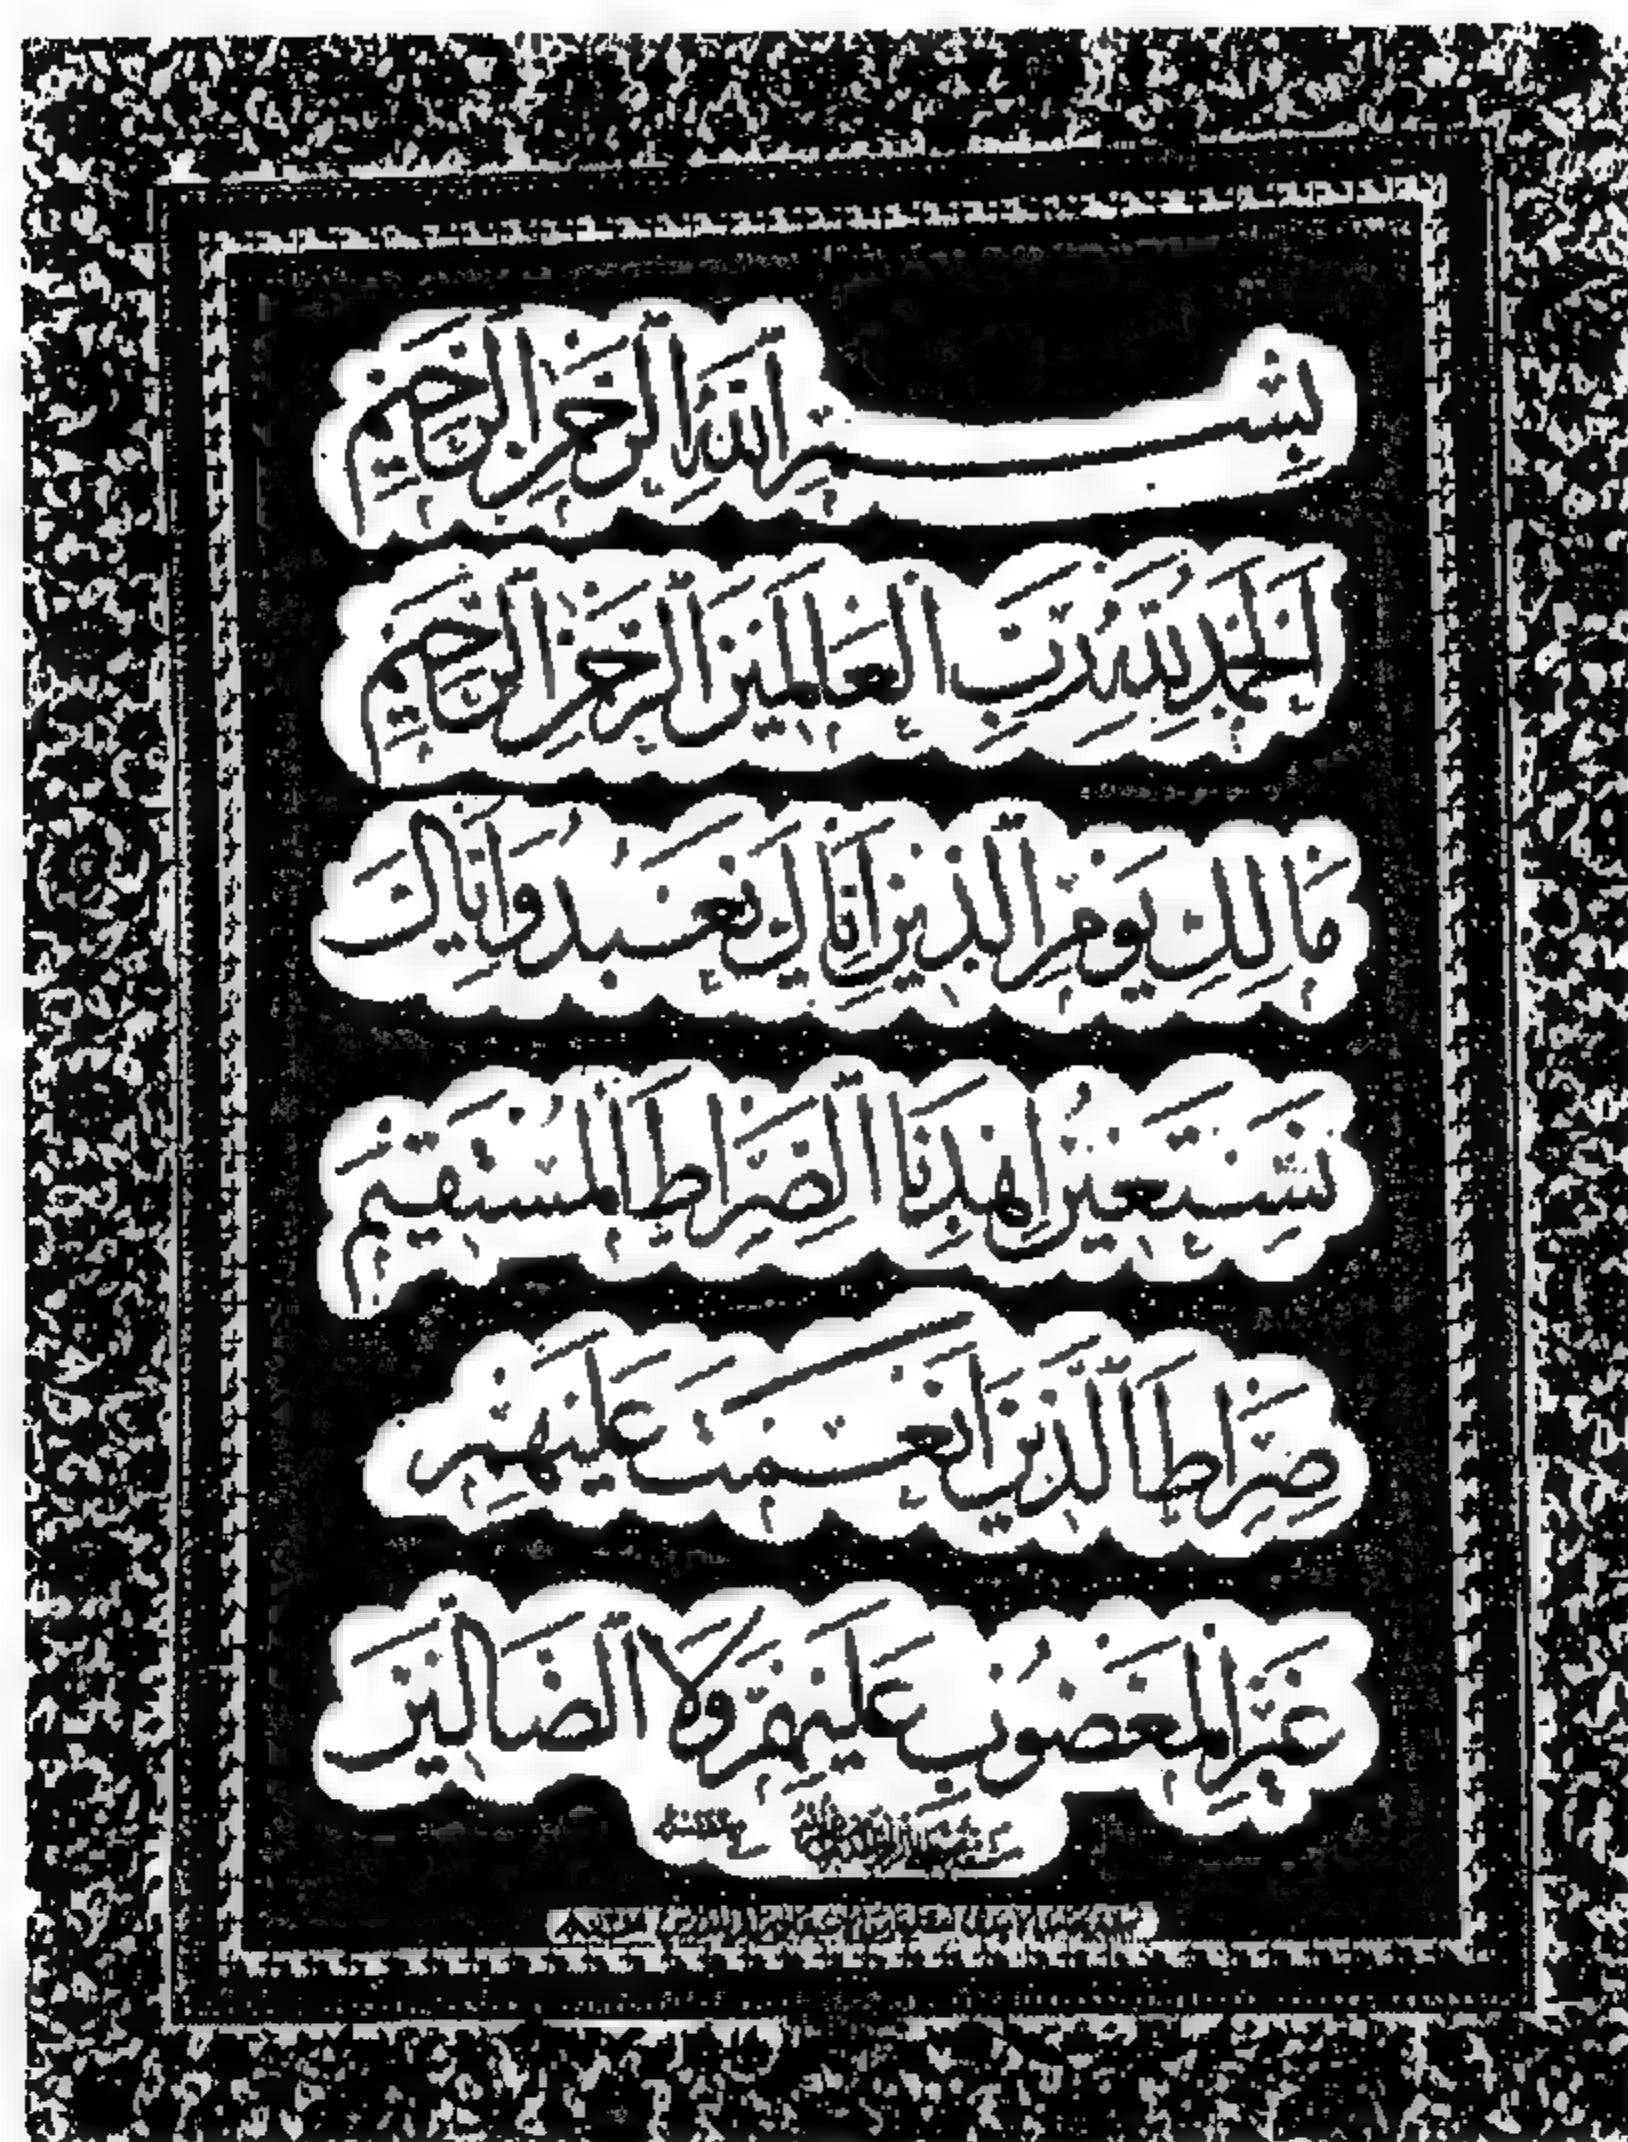 بِسْمِ اللَّهِ الرَّحْمَٰنِ الرَّحِيمِ
اَلْحَمْدُ لِلَّهِ رَبِّ الْعَالَمِينَ الرَّحْمَٰنِ الرَّحِيمِ
مَالِكِ يَوْمِ الدِّينِ اِيَّاكَ نَعْبُدُ وَاِيَّاكَ
نَسْتَعِينُ اِهْدِنَا الصِّرَاطَ الْمُسْتَقِيمَ
صِرَاطَ الَّذِينَ اَنْعَمْتَ عَلَيْهِمْ
غَيْرِ الْمَغْضُوبِ عَلَيْهِمْ وَلَا الضَّالِّينَ